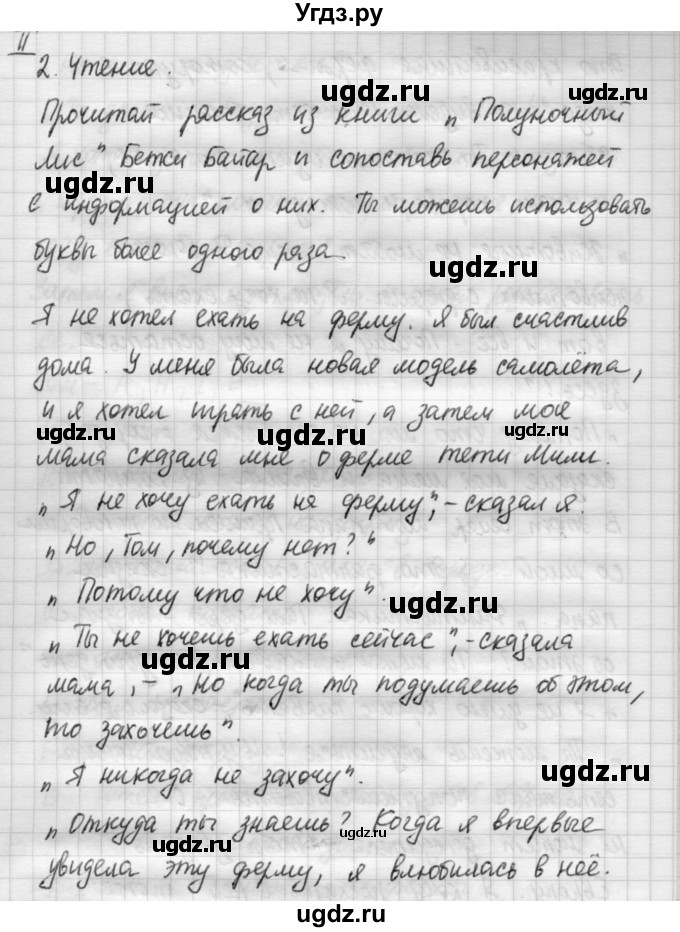 Угдз.ру
II
2. Чтение.
Прочитай рассказ из книги „Полуночный
Лис" Бетси Байар и сопоставь персонажей
с информацией о них. Ты можешь использовать
буквы более одного раза.
Я не хотел ехать на ферму. Я был счастлив
дома. У меня была новая модель самолёта,
и я хотел играть с ней, а затем моя
мама сказала мне о ферме тети Мили.
„Я не хочу ехать на ферму", – сказал я.
„Но, Том, почему нет?"
„Потому что не хочу".
„Ты не хочешь ехать сейчас", – сказала
мама, – „но когда ты подумаешь об этом,
то захочешь".
„Я никогда не захочу".
„Откуда ты знаешь? Когда я впервые
увидела эту ферму, я влюбилась в неё.
ugdz.ru
ugdz.ru
ugdz.ru
ugdz.ru
ugdz.ru
ugdz.ru
ugdz.ru
ugdz.ru
ugdz.ru
ugdz.ru
ugdz.ru
ugdz.ru
ugdz.ru
ugdz.ru